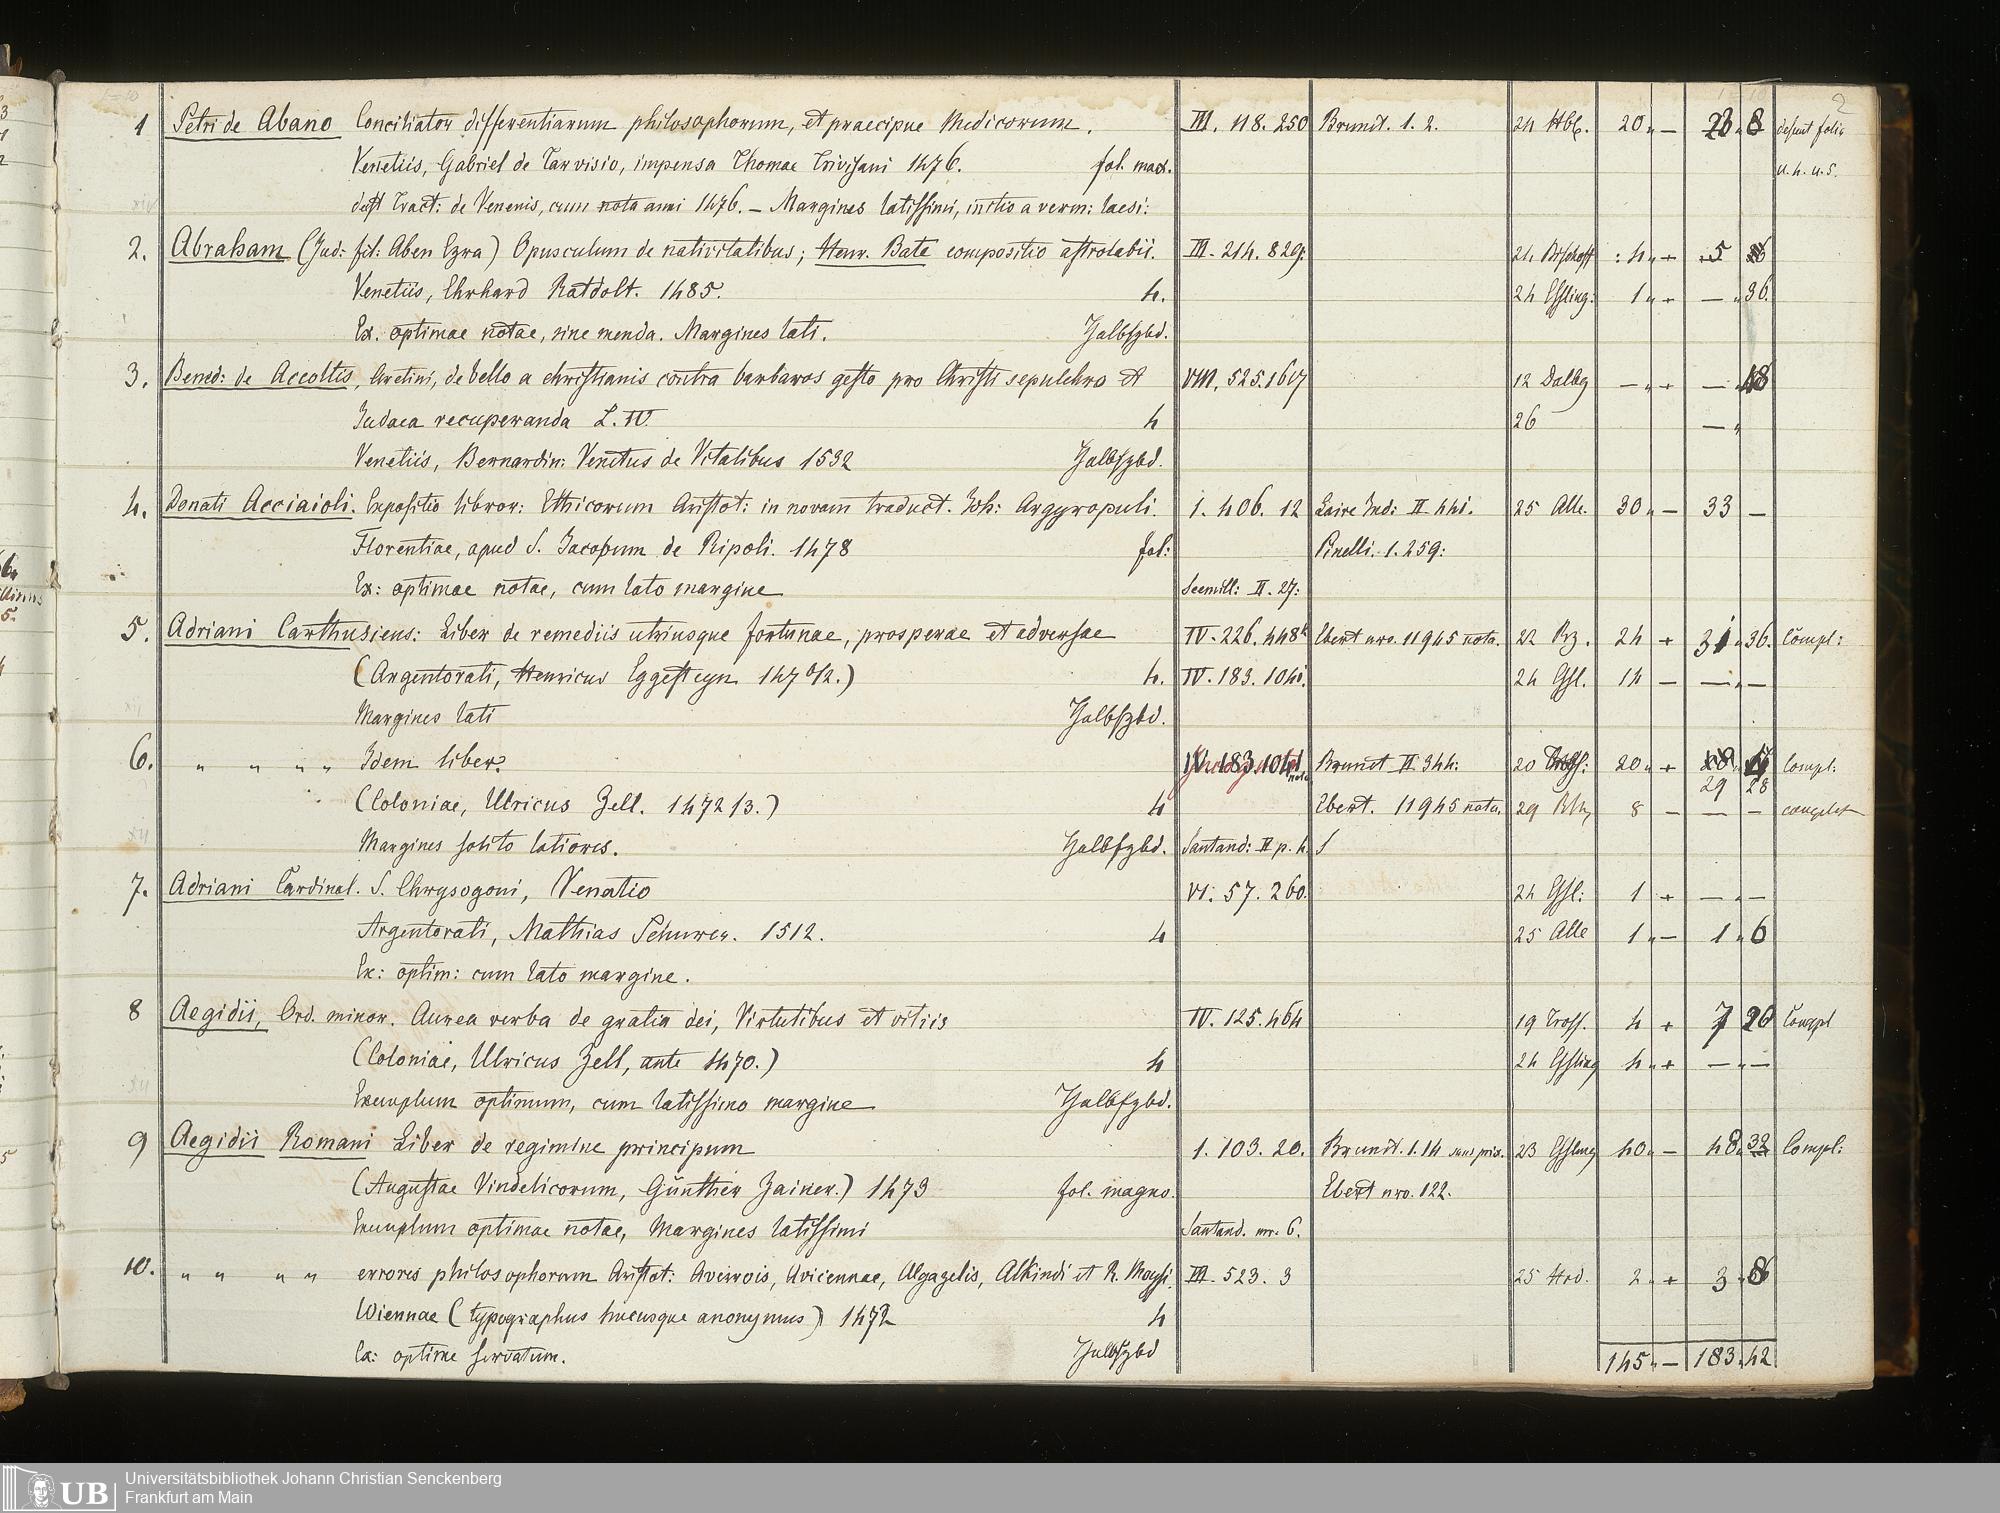 1 Petri de Abano Conciliator differentiarum philosophorum, et praecipue Medicorum. III. 118. 250 Brunet. 1. 2. 24 Hbl. 20 „ — 8 desunt folia
Venetiis, Gabriel de Tarvisio, impensa Thomae Trivisani 1476. fol. max. u. 4. u. 5.
deest Tract: de Venenis, cum nota anni 1476. — Margines latissimi, initio a verm: laesi:
2. Abraham (Jud: fil: Aben Ezra) Opusculum de nativitatibus; Henr. Bate compositio astrolabii. III. 214. 829: 24 Bischoff 4 „ + 5 36
Venetiis, Ehrhard Ratdolt. 1485. 4. 24 Essling: 1 „ + — „ 36.
Ex. optimae notae, sine menda. Margines lati. Halbfzbd.
3. Bened: de Accoltis, Aretini, de bello a christianis contra barbaros gesto pro Christi sepulchro et VIII. 525. 1617 12 Dalbg — „ + — „ 48
Judaea recuperanda L. IV. 4 26 — „
Venetiis, Bernardin: Venetus de Vitalibus 1532 Halbfzbd.
4. Donati Acciaioli. Expositio libror: Ethicorum Aristot: in novam traduct. Joh: Argyropuli. 1. 406. 12 Laire Ind: II 441. 25 Alle. 30 „ — 33 —
Florentiae, apud S. Jacobum de Ripoli. 1478 fol: Pinelli. 1. 259:
Ex: optimae notae, cum lato margine Seemill: II. 27:
5. Adriani Carthusiens: Liber de remediis utriusque fortunae, prosperae et adversae IV. 226. 448 Ebert nro. 11945 nota. 22 24 + 31 „ 36. Compl:
(Argentorati, Henricus Eggesteyn 1470/2.) 4. IV. 183. 1041. 24 Essl. 14 — — „ —
Margines lati Halbfzbd.
6. „ „ „ „ Idem liber. IV. 183. 1041 nota Brunet II 344: 20 20 „ + Compl:
29 28
(Coloniae, Ulricus Zell. 1472/3.) 4 Ebert. 11945 nota. 29 8 — — — complet
Margines solito latiores. Halbfzbd. Santand: II p. 4. 5
7. Adriani Cardinal. S. Chrysogoni, Venatio VI. 57. 260. 24 Essl: 1 + — „ —
Argentorati, Mathias Schurer. 1512. 4 25 Alle 1 „ — 1 „ 6
Ex: optim: cum lato margine.
8 Aegidii, Ord. minor. Aurea verba de gratia dei, Virtutibus et vitiis IV. 125. 464 19 Tross. 4 + 7 26 Compl
(Coloniae, Ulricus Zell, ante 1470.) 4 24 Essling 4 „ + — „ —
Exemplum optimum, cum latissimo margine Halbfzbd.
9 Aegidii Romani Liber de regimine principum 1. 103. 20. Brunet. 1. 14 sans prix. 23 Essling 40 „ — 48 „ 32 Compl:
(Augustae Vindelicorum, Günther Zainer.) 1473 fol. magno. Ebert nro. 122.
Exemplum optimae notae, Margines latissimi Santand. nr. 6.
10. „ „ „ „ errores philosophorum Aristot: Averrois, Avicennae, Algazelis, Alkindi et R. Moysi. III. 523. 3 25 Hrd. 2 „ + 3 „
Wiennae (typographus hucusque anonymus) 1472 4
Ex: optime servatum. Halbfzbd 145 „ — 183 „ 42
2
UB Universitätsbibliothek Johann Christian Senckenberg
Frankfurt am Main